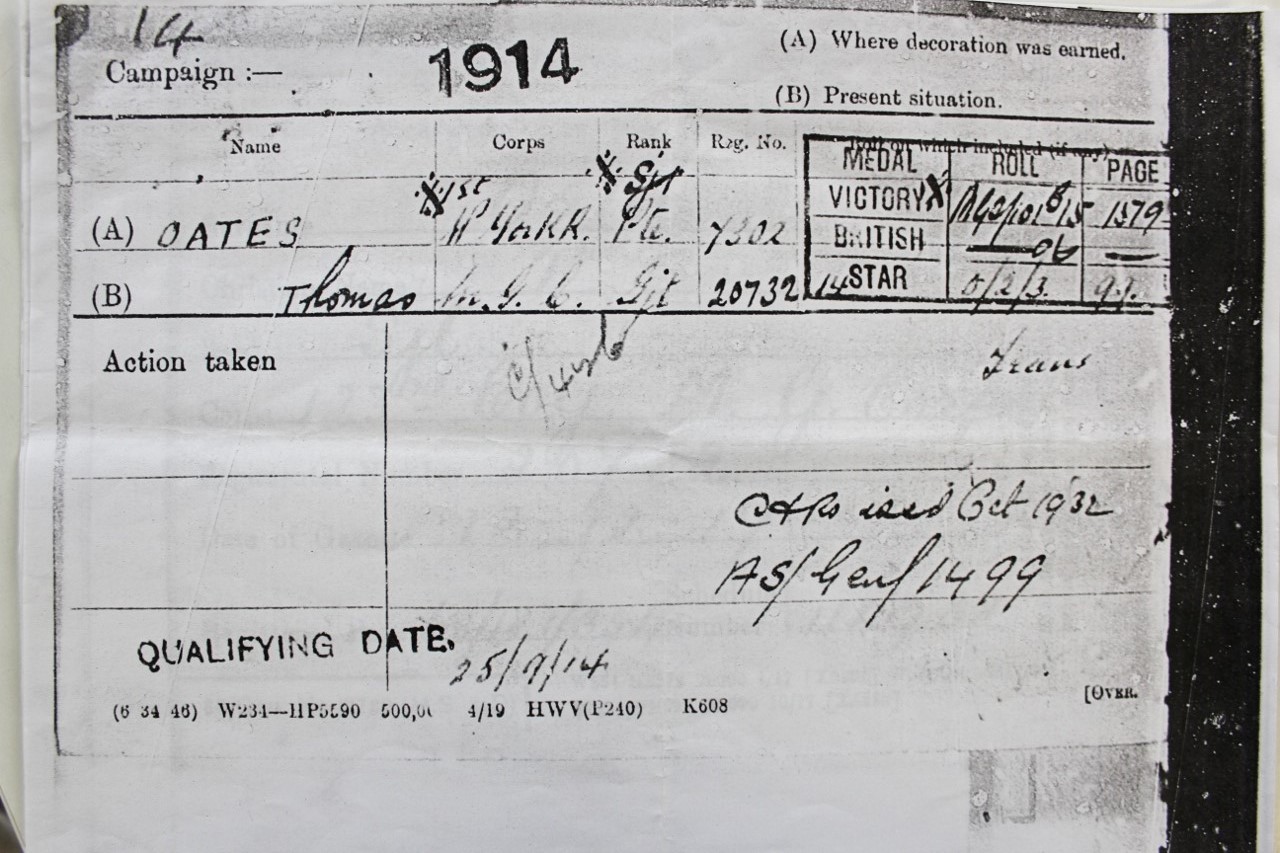 14
Campaign :— 1914
(A) Where decoration was earned.
(B) Present situation.
Name Corps Rank Reg. No. Roll on which included (if any)
MEDAL ROLL PAGE
X 1st X Sjt VICTORY X 1579
(A) OATES W York R. Pte. 7302 BRITISH
(B) Thomas M. G. C. Sjt 20732 14 STAR 0/2/3. 97.
Action taken Trans
issd Oct 1932
AS/Genl/1499
QUALIFYING DATE. 25/9/14
(6 34 46) W234—HP5590 500,0 4/19 HWV(P240) K608 [OVER.